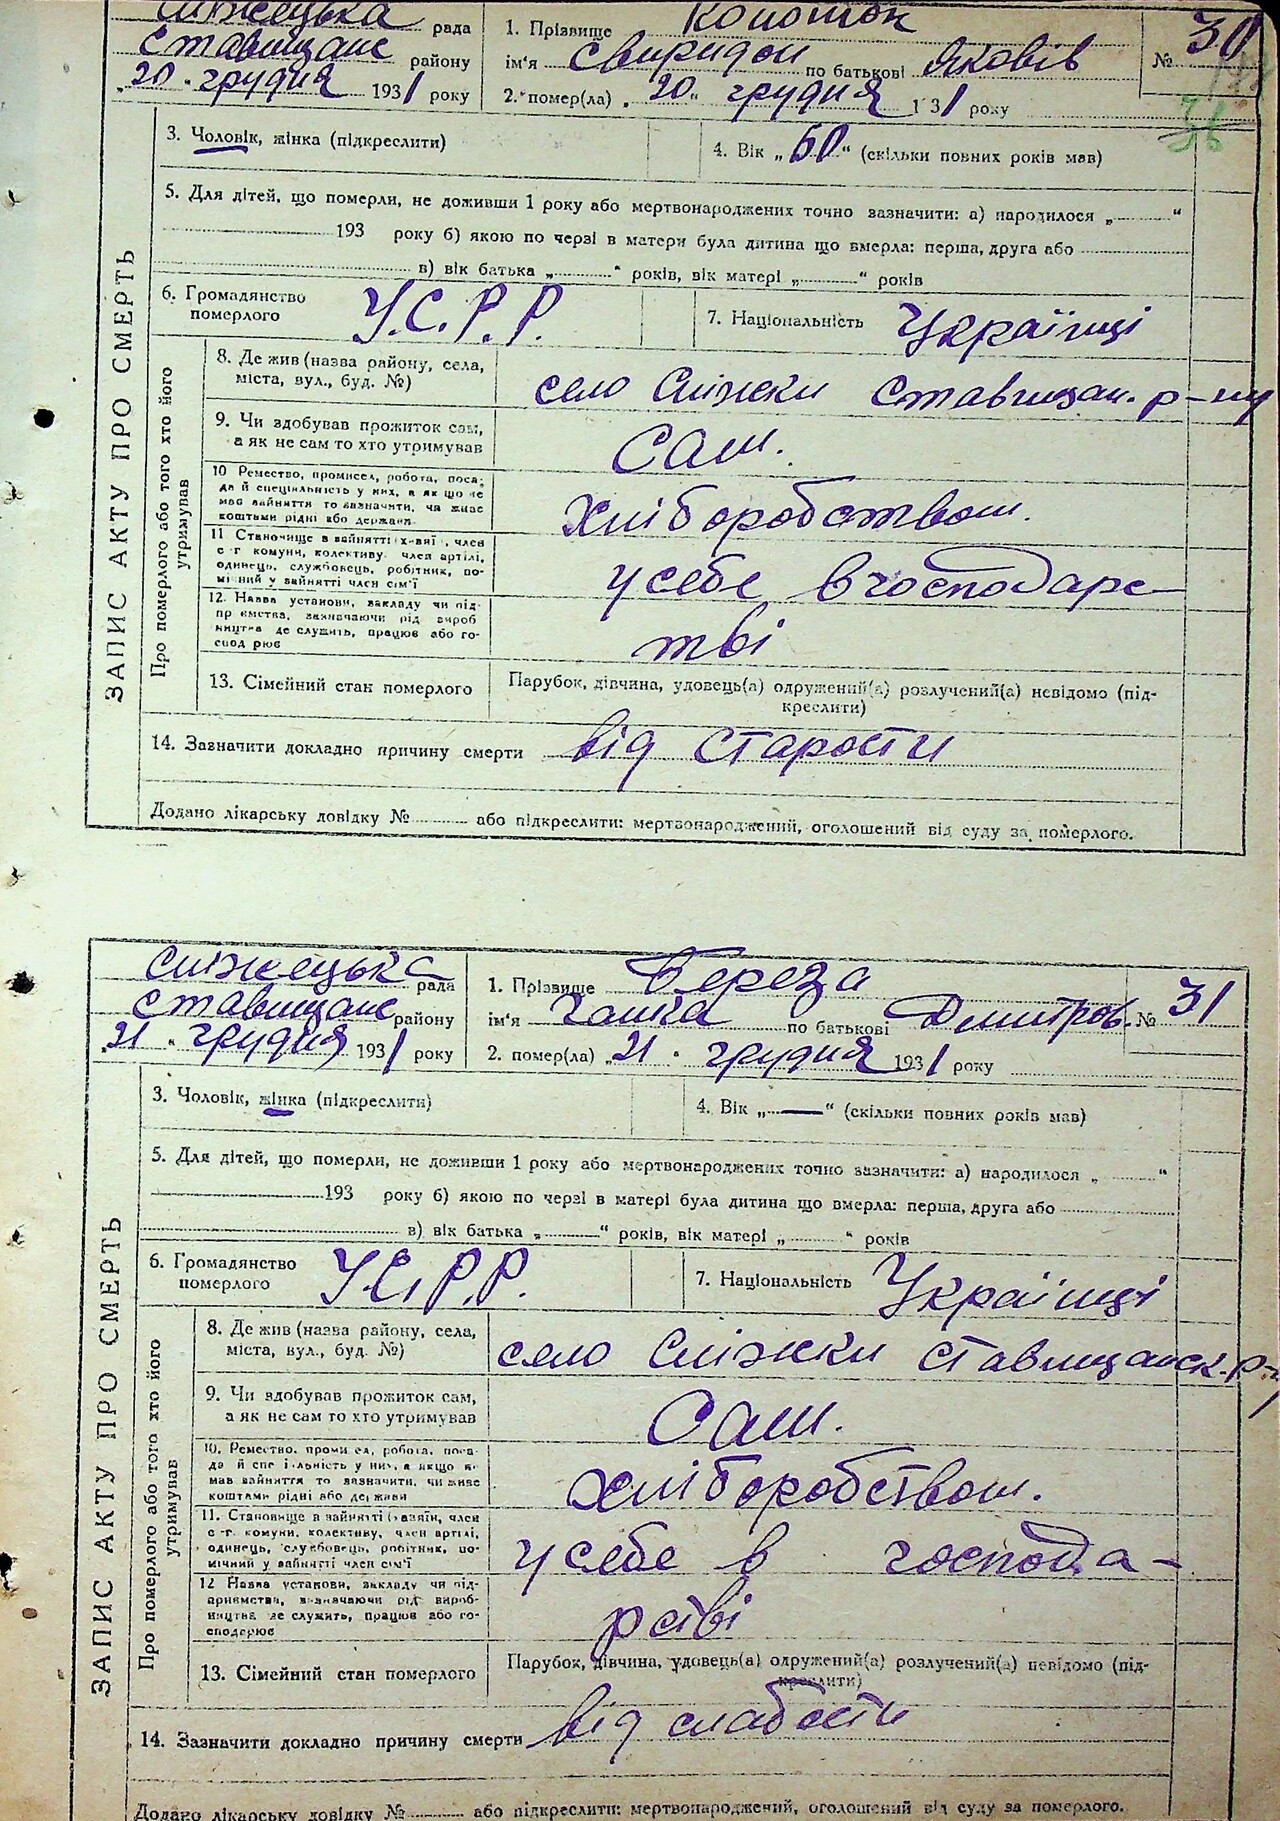 рада
Ставищанс району
„20 „ грудня 1931 року
1. Прізвище Копоток
ім'я Свиридон по батькові Яковів
2. помер(ла) „20“ грудня 1931 року
№ 30
36
ЗАПИС АКТУ ПРО СМЕРТЬ
3. Чоловік, жінка (підкреслити)
4. Вік „60“ (скільки повних років мав)
5. Для дітей, що померли, не доживши 1 року або мертвонароджених точно зазначити: а) народилося „ “
193 року б) якою по черзі в матери була дитина що вмерла: перша, друга або
в) вік батька „ “ років, вік матері „ “ років
6. Громадянство
померлого
У.С.Р.Р.
7. Національність Українці
Про померлого або того хто його
утримував
8. Де жив (назва району, села,
міста, вул., буд. №)
село Сніжки Ставищан. р-ну
9. Чи здобував прожиток сам,
а як не сам то хто утримував
Сам.
10 Ремество, промисел, робота, поса-
да й спеціяльність у них, а як що не
мав вайняття то зазначити, чи живе
коштами рідні або держави
Хліборобством.
11 Становище в вайнятті , член
с-г комуни, колективу член артілі,
одинець, службовець, робітник, по-
мічний у вайнятті член сім'ї
у себе в господарс-
12. Назва установи, закладу чи під-
приємства, зазначаючи рід вироб
ництва де служить, працює або го-
спод рює
тві
13. Сімейний стан померлого
Парубок, дівчина, удовець(а) одружений(а) розлучений(а) невідомо (під-
креслити)
14. Зазначити докладно причину смерти від старости
Додано лікарську довідку № або підкреслити: мертвонароджений, оголошений від суду за померлого.
Сніжецька рада
Ставищанс району
„21 „ грудня 1931 року
1. Прізвище Береза
ім'я Ганна по батькові Дмитров.
2. помер(ла) „21 „ грудня 1931 року
№ 31
ЗАПИС АКТУ ПРО СМЕРТЬ
3. Чоловік, жінка (підкреслити)
4. Вік „—“ (скільки повних років мав)
5. Для дітей, що померли, не доживши 1 року або мертвонароджених точно зазначити: а) народилося „ “
193 року б) якою по черзі в матері була дитина що вмерла: перша, друга або
в) вік батька „ “ років, вік матері „ “ років
6. Громадянство
померлого
У.С.Р.Р.
7. Національність Українці
Про померлого або того хто його
утримував
8. Де жив (назва району, села,
міста, вул., буд. №)
село Сніжки Ставищанск. р-н
9. Чи здобував прожиток сам,
а як не сам то хто утримував
Сам.
10. Ремество, проми ел, робота, поса-
да й спе і льність у них, а якщо н
мав вайняття то зазначити, чи живе
коштами рідні або держави
Хліборобством.
11. Становище в вайнятті (хазяїн, член
с-г. комуни, колективу, член артілі,
одинець, службовець, робітник, по-
мічний у вайнятті член сім'ї
у себе в господа-
12 Назва установи, закладу чи під-
приємства, зазначаючи рід вироб-
ництва де служить, працює або го-
сподарює
рстві
13. Сімейний стан померлого
Парубок, дівчина, удовець(а) одружений(а) розлучений(а) невідомо (під-
креслити)
14. Зазначити докладно причину смерти від слабости
Додано лікарську довідку № або підкреслити: мертвонароджений, оголошений від суду за померлого.